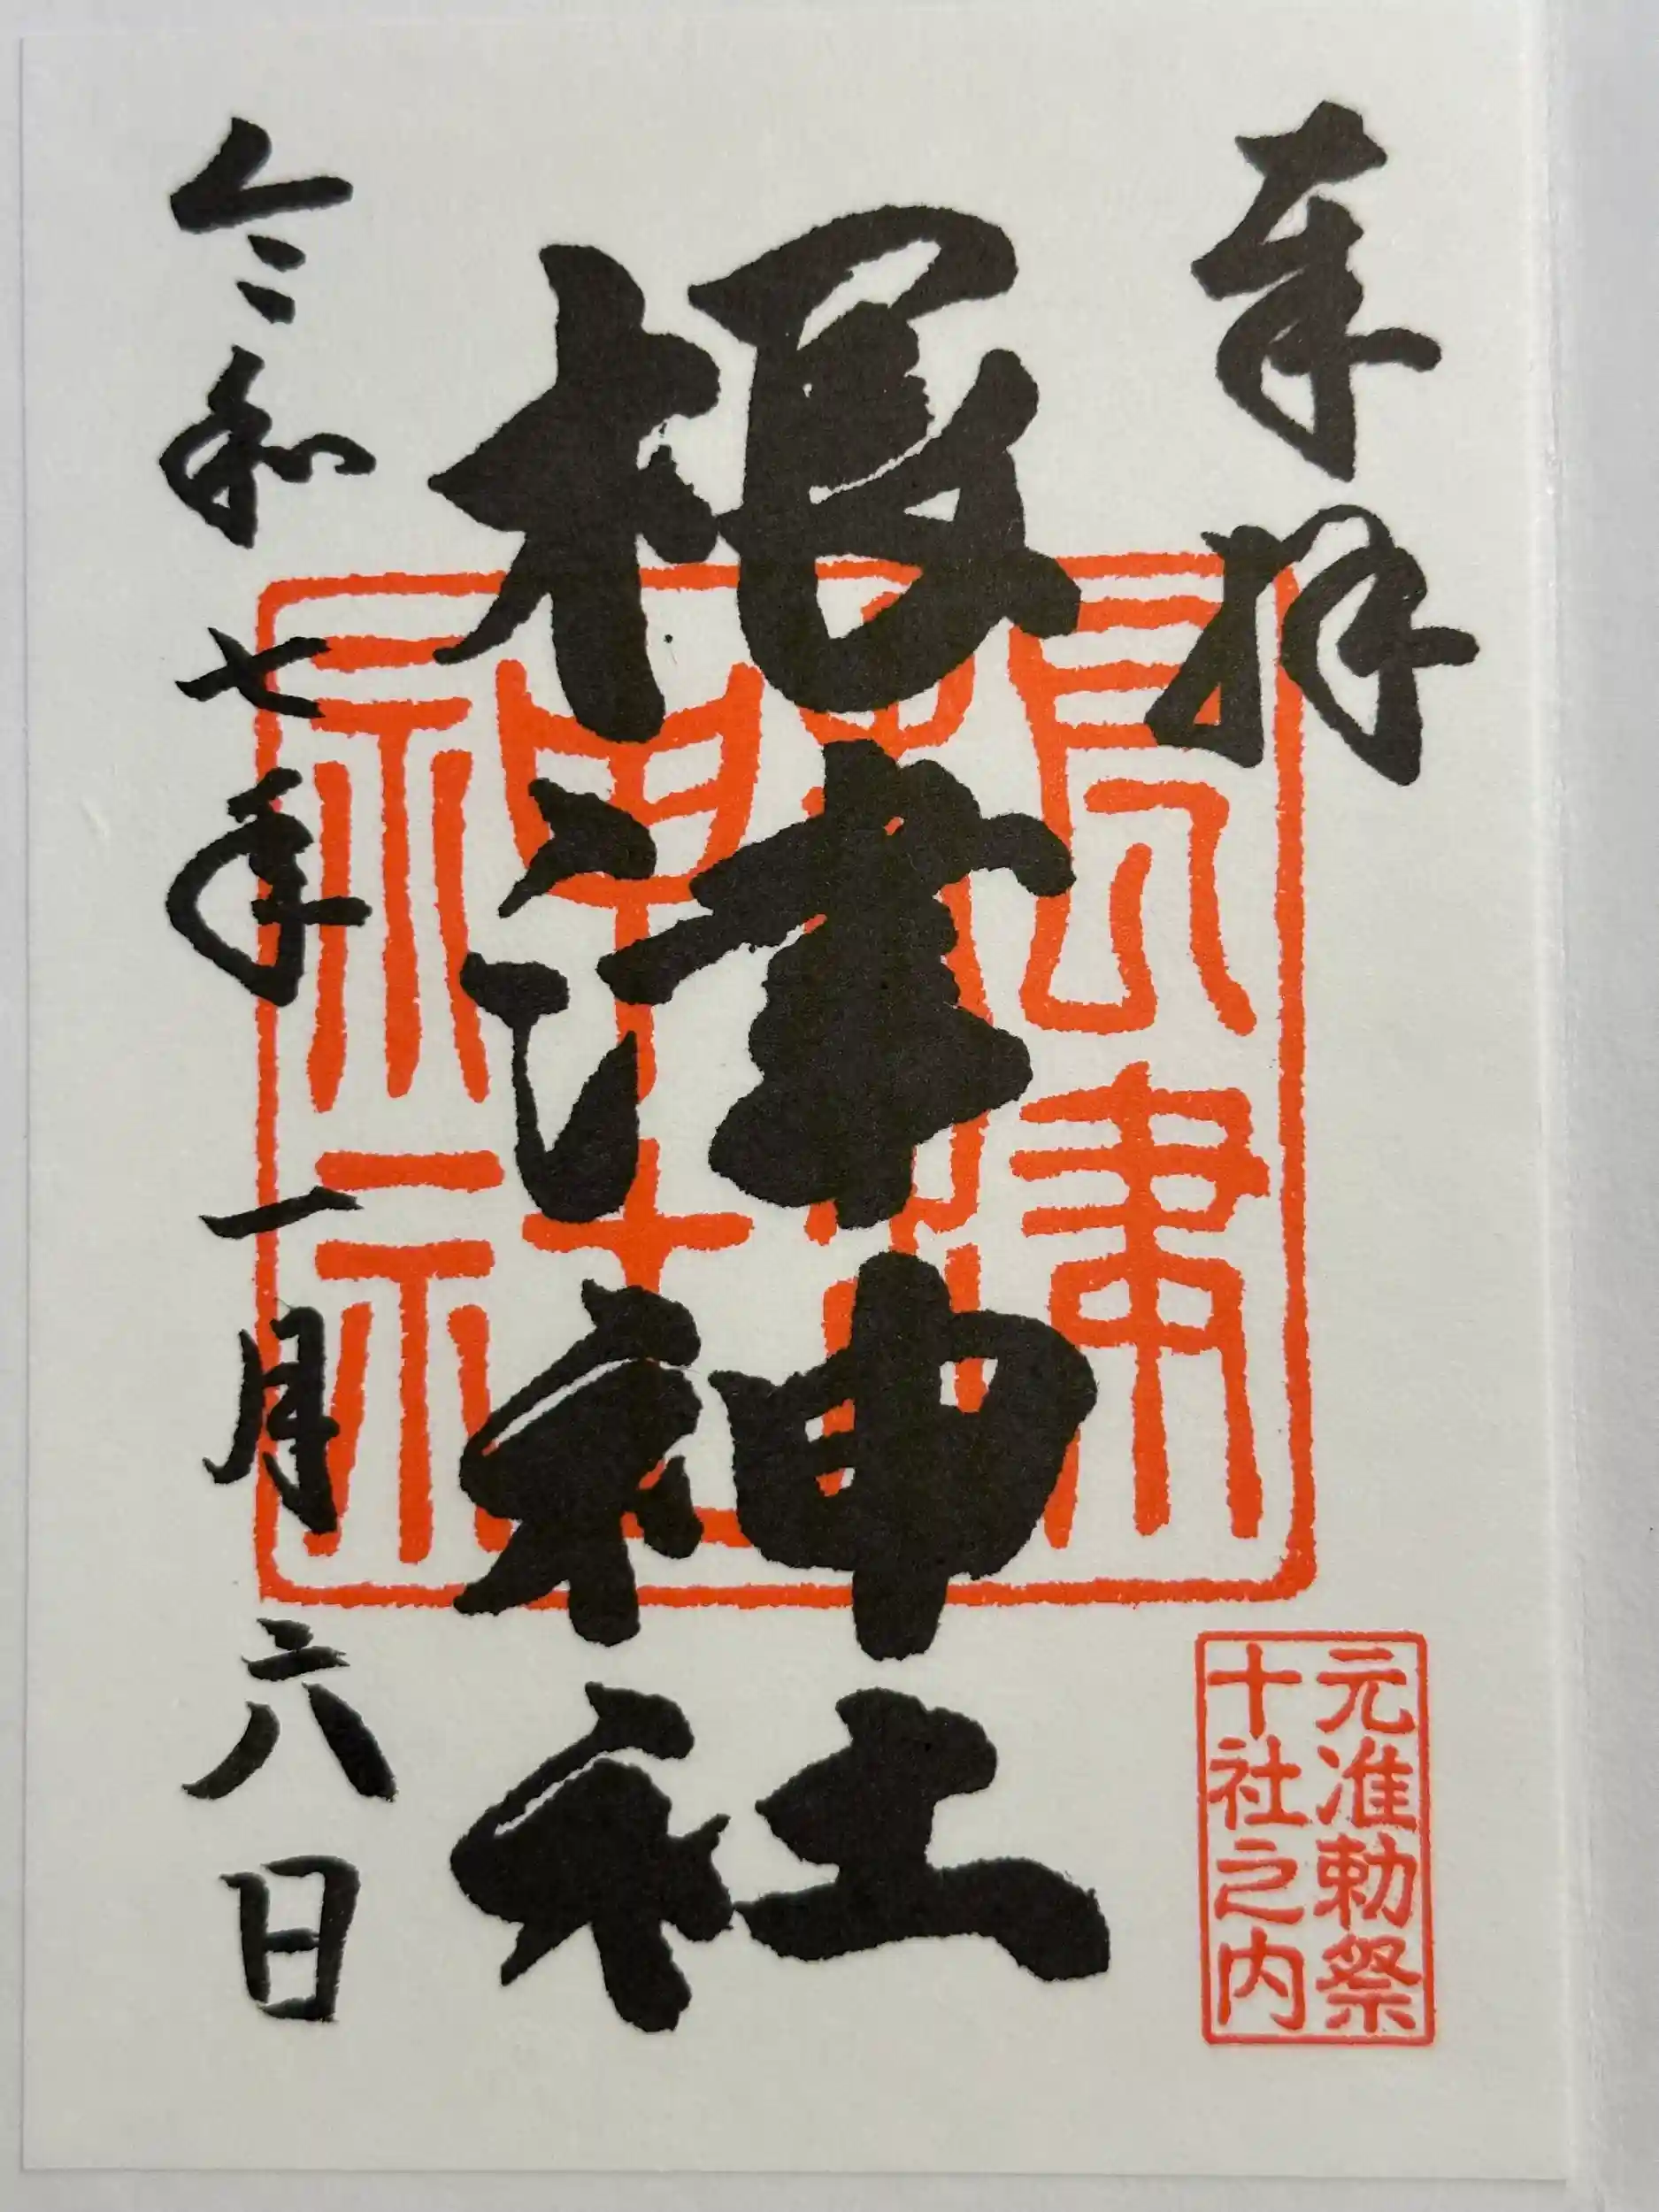 奉拝
根津神社
令和七年一月六日
根津神社
元准勅祭
十社之内